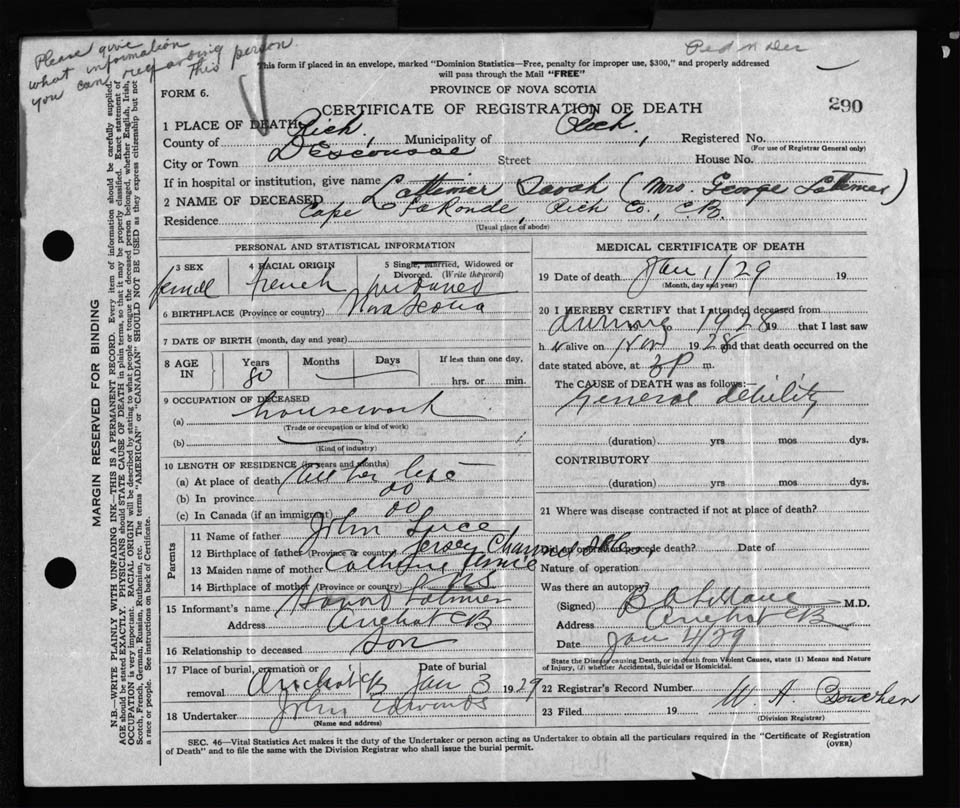 Please give
what information
you can regarding
this person
This form if placed in an envelope, marked "Dominion Statistics—Free, penalty for improper use, $300," and properly addressed
will pass through the Mail "FREE"
FORM 6.
PROVINCE OF NOVA SCOTIA
CERTIFICATE OF REGISTRATION OF DEATH
290
1 PLACE OF DEATH:
County of Rich, Municipality of Rich, Registered No.
(For use of Registrar General only)
City or Town Descousse Street House No.
If in hospital or institution, give name
2 NAME OF DECEASED Lattimer Sarah (Mrs. George Latimer)
Residence Cape LaRonde, Rich Co., C.B.
(Usual place of abode)
MARGIN RESERVED FOR BINDING
N.B.—WRITE PLAINLY WITH UNFADING INK—THIS IS A PERMANENT RECORD. Every item of information should be carefully supplied.
AGE should be stated EXACTLY. PHYSICIANS should STATE CAUSE OF DEATH in plain terms, so that it may be properly classified. Exact statement of
OCCUPATION is very important. RACIAL ORIGIN will be described by stating to what people or tongue the deceased person belonged, whether English, Irish,
Scotch, French, German, Russian, Ruthenian, etc. The terms "AMERICAN" or "CANADIAN" SHOULD NOT BE USED as they express citizenship but not
a race or people. See instructions on back of Certificate.
PERSONAL AND STATISTICAL INFORMATION
3 SEX 4 RACIAL ORIGIN 5 Single, Married, Widowed or
Divorced. (Write the word)
French widowed
6 BIRTHPLACE (Province or country) Nova Scotia
7 DATE OF BIRTH (month, day and year)
8 AGE IN Years Months Days If less than one day,
80 hrs. or min.
9 OCCUPATION OF DECEASED
(a) housework
(Trade or occupation or kind of work)
(b)
(Kind of industry)
10 LENGTH OF RESIDENCE (in years and months)
(a) At place of death All her life
(b) In province do
(c) In Canada (if an immigrant) do
Parents
11 Name of father John Luce
12 Birthplace of father (Province or country) Jersey Channel
13 Maiden name of mother Catherine
14 Birthplace of mother (Province or country) NS
15 Informant's name Latimer
Address Arichat CB
16 Relationship to deceased son
17 Place of burial, cremation or Date of burial
removal Arichat CB Jan 3 1929
18 Undertaker John Edwards
(Name and address)
MEDICAL CERTIFICATE OF DEATH
19 Date of death Jan 1/29 19
(Month, day and year)
20 I HEREBY CERTIFY that I attended deceased from
during 1928 19 that I last saw
h alive on Nov 1928 and that death occurred on the
date stated above, at 3P m.
The CAUSE of DEATH was as follows:—
General debility
(duration) yrs mos dys.
CONTRIBUTORY
(duration) yrs mos dys.
21 Where was disease contracted if not at place of death?
Did an operation precede death? Date of
Nature of operation
Was there an autopsy?
(Signed) M.D.
Address Arichat CB
Date Jan 4/29
State the Disease causing Death, or in death from Violent Causes, state (1) Means and Nature
of Injury, (2) whether Accidental, Suicidal or Homicidal.
22 Registrar's Record Number
23 Filed 19 W. A.
(Division Registrar)
SEC. 46—Vital Statistics Act makes it the duty of the Undertaker or person acting as Undertaker to obtain all the particulars required in the "Certificate of Registration
of Death" and to file the same with the Division Registrar who shall issue the burial permit. (OVER)